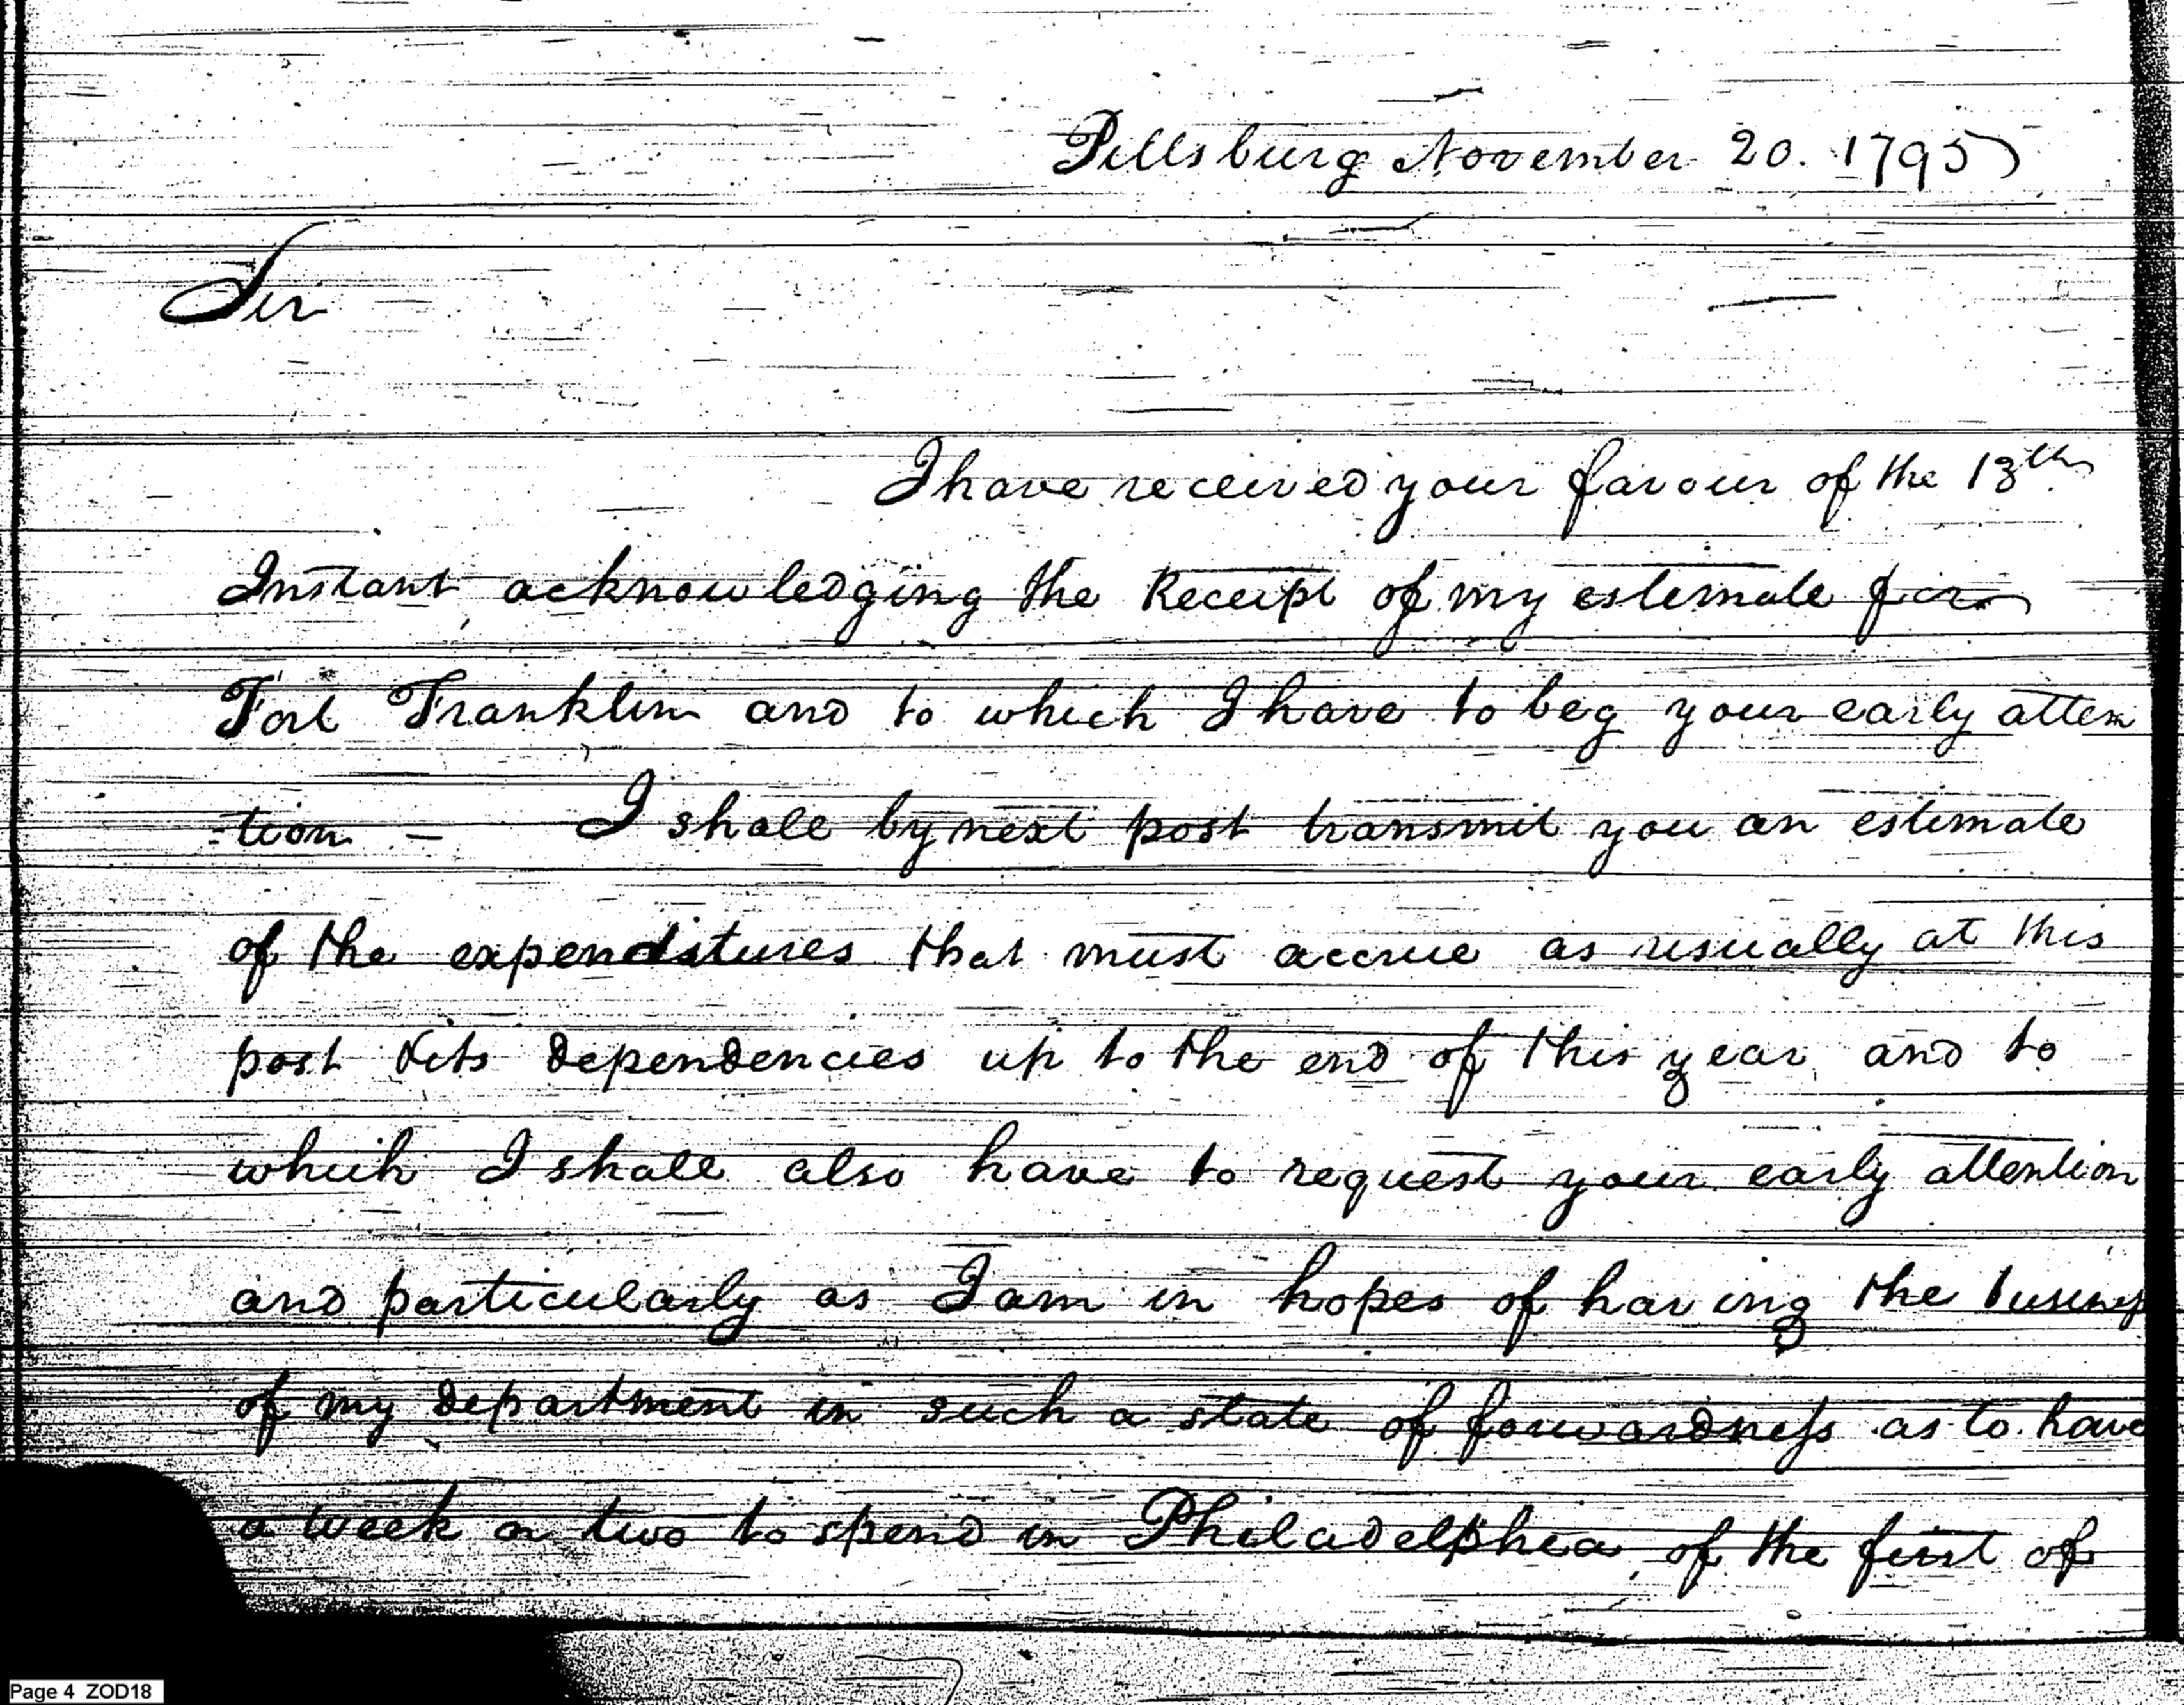 Pittsburg November 20. 1795
Sir
I have received your favour of the 13th
Instant acknowledging the Receipt of my estimate for
Fort Franklin and to which I have to beg your early atten
-tion - I shall by next post transmit you an estimate
of the expenditures that must accrue as usually at this
post & its dependencies up to the end of this year and to
which I shall also have to request your early attention
and particularly as I am in hopes of having the business
of my department in such a state of forwardness as to have
a week or two to spend in Philadelphia of the first of
Page 4 ZOD18